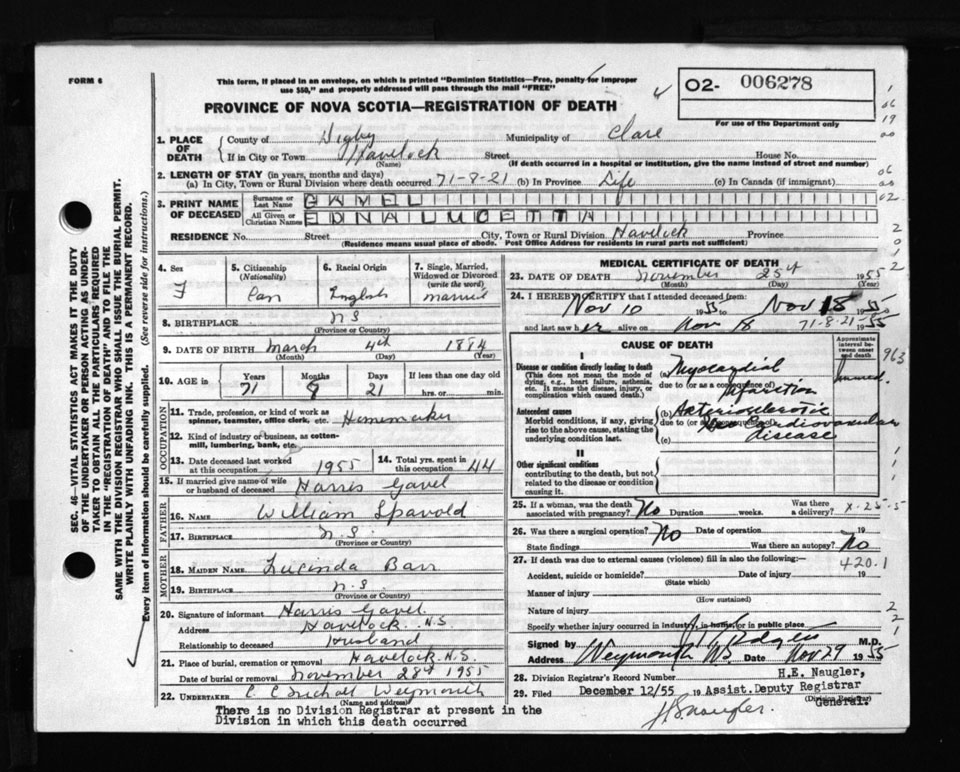 FORM 6
This form, if placed in an envelope, on which is printed "Dominion Statistics—Free, penalty for improper
use $50," and properly addressed will pass through the mail "FREE"
02- 006278
For use of the Department only
PROVINCE OF NOVA SCOTIA—REGISTRATION OF DEATH
1. PLACE OF DEATH
County of Digby Municipality of Clare
If in City or Town Havelock Street House No.
(Name) (If death occurred in a hospital or institution, give the name instead of street and number)
2. LENGTH OF STAY (in years, months and days)
(a) In City, Town or Rural Division where death occurred 71-8-21 (b) In Province Life (c) In Canada (if immigrant)
3. PRINT NAME OF DECEASED
Surname or Last Name GAVEL
All Given or Christian Names EDNA LUCETTA
RESIDENCE No. Street City, Town or Rural Division Havelock Province
(Residence means usual place of abode. Post Office Address for residents in rural parts not sufficient)
4. Sex F
5. Citizenship (Nationality) Can
6. Racial Origin English
7. Single, Married, Widowed or Divorced (write the word) married
8. BIRTHPLACE N S
(Province or Country)
9. DATE OF BIRTH March 4th 1884
(Month) (Day) (Year)
10. AGE in Years 71 Months Days 21 If less than one day old hrs. or min.
OCCUPATION
11. Trade, profession, or kind of work as spinner, teamster, office clerk, etc. Homemaker
12. Kind of industry or business, as cotton-mill, lumbering, bank, etc.
13. Date deceased last worked at this occupation 1955
14. Total yrs. spent in this occupation 44
15. If married give name of wife or husband of deceased Harris Gavel
FATHER
16. NAME William Spavold
17. BIRTHPLACE N.S
(Province or Country)
MOTHER
18. MAIDEN NAME Lucinda Barr
19. BIRTHPLACE N.S
(Province or Country)
20. Signature of informant Harris Gavel
Address Havelock N.S
Relationship to deceased Husband
21. Place of burial, cremation or removal Havelock N.S.
Date of burial or removal November 28th 1955
22. UNDERTAKER Weymouth
(Name and Address)
There is no Division Registrar at present in the
Division in which this death occurred
MEDICAL CERTIFICATE OF DEATH
23. DATE OF DEATH November 25th 1955
(Month) (Day) (Year)
24. I HEREBY CERTIFY that I attended deceased from:
Nov 10 1955 to Nov 18 1955
and last saw her alive on Nov 18 1955
71-8-21
CAUSE OF DEATH
Approximate interval between onset and death
I
Disease or condition directly leading to death
(This does not mean the mode of dying, e.g., heart failure, asthenia, etc. It means the disease, injury, or complication which caused death.
(a) Myocardial Infarction
due to (or as a consequence of)
963
Antecedent causes
Morbid conditions, if any, giving rise to the above cause, stating the underlying condition last.
(b) Arteriosclerotic
due to (or as a consequence of)
Cardiovascular disease
(c)
II
Other significant conditions
contributing to the death, but not related to the disease or condition causing it.
25. If a woman, was the death associated with pregnancy? No Duration weeks. Was there a delivery? X-25-5
26. Was there a surgical operation? No Date of operation 19
State findings Was there an autopsy? No
27. If death was due to external causes (violence) fill in also the following:—
420.1
Accident, suicide or homicide? Date of injury 19
(State which)
Manner of injury
(How sustained)
Nature of injury
Specify whether injury occurred in industry, in home, or in public place
Signed by M.D.
Address Weymouth NS. Date Nov 29 1955
28. Division Registrar's Record Number
H.E. Naugler,
29. Filed December 12/55 19 Assist. Deputy Registrar
(Division Registrar)
General.
H E Naugler.
SEC. 46—VITAL STATISTICS ACT MAKES IT THE DUTY
OF THE UNDERTAKER OR PERSON ACTING AS UNDER-
TAKER TO OBTAIN ALL THE PARTICULARS REQUIRED
IN THE "REGISTRATION OF DEATH" AND TO FILE THE
SAME WITH THE DIVISION REGISTRAR WHO SHALL ISSUE THE BURIAL PERMIT.
WRITE PLAINLY WITH UNFADING INK. THIS IS A PERMANENT RECORD.
Every item of information should be carefully supplied. (See reverse side for instructions.)